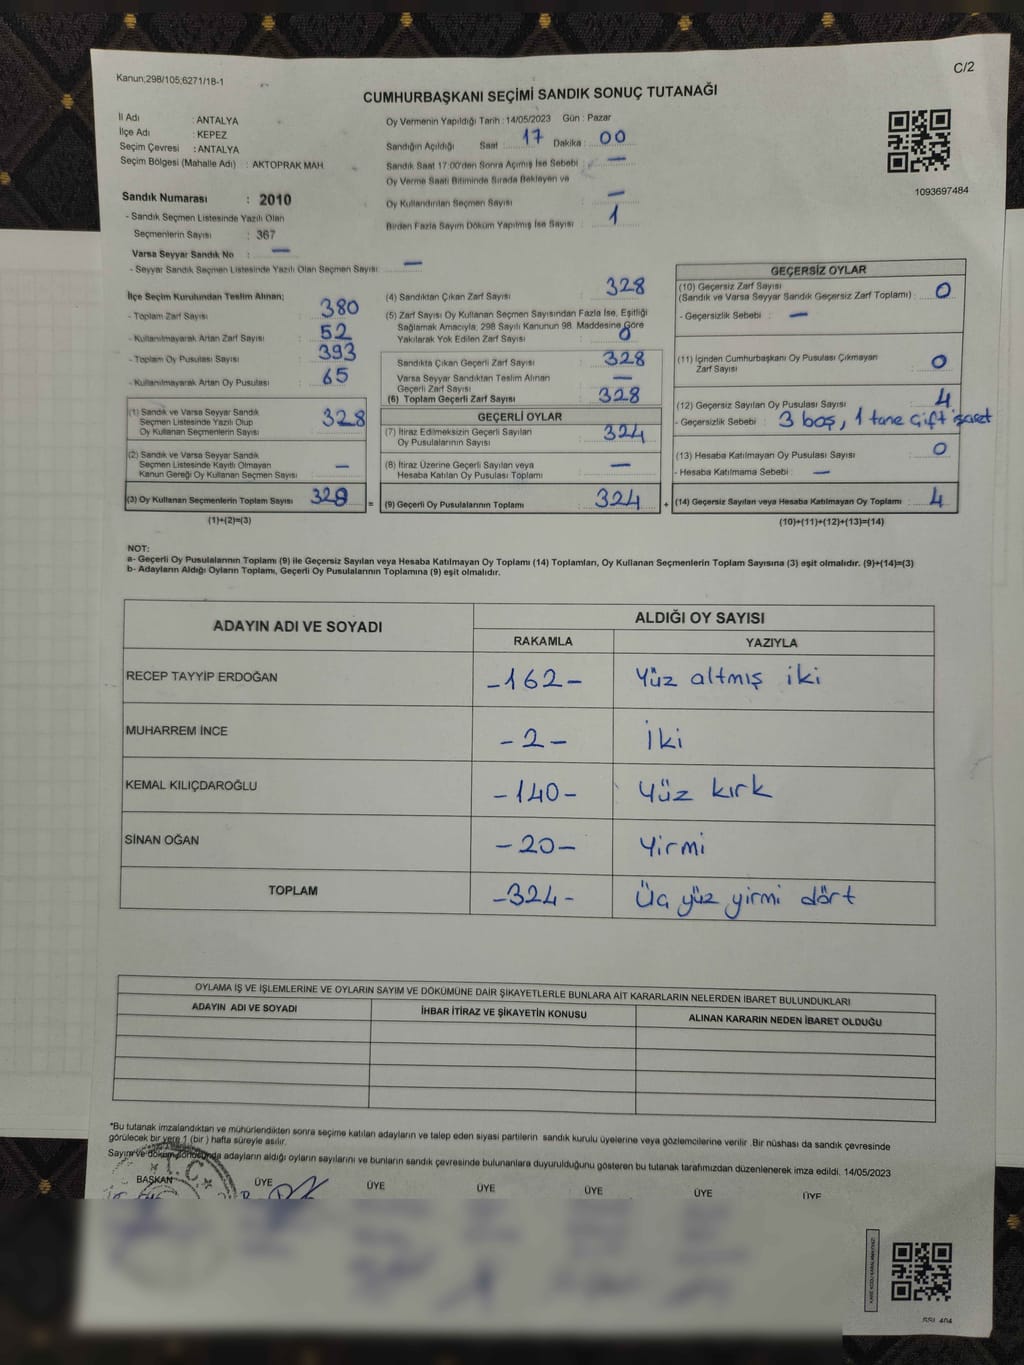 Kanun;298/105;6271/18-1
C/2
CUMHURBAŞKANI SEÇİMİ SANDIK SONUÇ TUTANAĞI
İl Adı : ANTALYA
İlçe Adı : KEPEZ
Seçim Çevresi : ANTALYA
Seçim Bölgesi (Mahalle Adı) : AKTOPRAK MAH.
Oy Vermenin Yapıldığı Tarih : 14/05/2023 Gün : Pazar
Sandığın Açıldığı Saat : 17 Dakika : 00
Sandık Saat 17:00'den Sonra Açımış İse Sebebi : —
Oy Verme Saati Bitiminde Sırada Bekleyen ve
Oy Kullandırılan Seçmen Sayısı : —
Birden Fazla Sayım Döküm Yapılmış İse Sayısı : 1
1093697484
Sandık Numarası : 2010
- Sandık Seçmen Listesinde Yazılı Olan
Seçmenlerin Sayısı : 367
Varsa Seyyar Sandık No : —
- Seyyar Sandık Seçmen Listesinde Yazılı Olan Seçmen Sayısı: —
İlçe Seçim Kurulundan Teslim Alınan;
- Toplam Zarf Sayısı : 380
- Kullanılmayarak Artan Zarf Sayısı : 52
- Toplam Oy Pusulası Sayısı : 393
- Kullanılmayarak Artan Oy Pusulası : 65
(1) Sandık ve Varsa Seyyar Sandık
Seçmen Listesinde Yazılı Olup
Oy Kullanan Seçmenlerin Sayısı : 328
(2) Sandık ve Varsa Seyyar Sandık
Seçmen Listesinde Kayıtlı Olmayan
Kanun Gereği Oy Kullanan Seçmen Sayısı : —
(3) Oy Kullanan Seçmenlerin Toplam Sayısı : 328 =
(1)+(2)=(3)
(4) Sandıktan Çıkan Zarf Sayısı : 328
(5) Zarf Sayısı Oy Kullanan Seçmen Sayısından Fazla İse, Eşitliği
Sağlamak Amacıyla, 298 Sayılı Kanunun 98. Maddesine Göre
Yakılarak Yok Edilen Zarf Sayısı : 0
Sandıkta Çıkan Geçerli Zarf Sayısı : 328
Varsa Seyyar Sandıktan Teslim Alınan
Geçerli Zarf Sayısı : —
(6) Toplam Geçerli Zarf Sayısı : 328
GEÇERLİ OYLAR
(7) İtiraz Edilmeksizin Geçerli Sayılan
Oy Pusulalarının Sayısı : 324
(8) İtiraz Üzerine Geçerli Sayılan veya
Hesaba Katılan Oy Pusulası Toplamı : —
(9) Geçerli Oy Pusulalarının Toplamı : 324 +
GEÇERSİZ OYLAR
(10) Geçersiz Zarf Sayısı
(Sandık ve Varsa Seyyar Sandık Geçersiz Zarf Toplamı) : 0
- Geçersizlik Sebebi : —
(11) İçinden Cumhurbaşkanı Oy Pusulası Çıkmayan
Zarf Sayısı : 0
(12) Geçersiz Sayılan Oy Pusulası Sayısı : 4
- Geçersizlik Sebebi : 3 boş, 1 tane çift işaret
(13) Hesaba Katılmayan Oy Pusulası Sayısı : 0
- Hesaba Katılmama Sebebi : —
(14) Geçersiz Sayılan veya Hesaba Katılmayan Oy Toplamı : 4
(10)+(11)+(12)+(13)=(14)
NOT:
a- Geçerli Oy Pusulalarının Toplamı (9) ile Geçersiz Sayılan veya Hesaba Katılmayan Oy Toplamı (14) Toplamları, Oy Kullanan Seçmenlerin Toplam Sayısına (3) eşit olmalıdır. (9)+(14)=(3)
b- Adayların Aldığı Oyların Toplamı, Geçerli Oy Pusulalarının Toplamına (9) eşit olmalıdır.
ADAYIN ADI VE SOYADI
ALDIĞI OY SAYISI
RAKAMLA YAZIYLA
RECEP TAYYİP ERDOĞAN -162- Yüz altmış iki
MUHARREM İNCE -2- İki
KEMAL KILIÇDAROĞLU -140- Yüz kırk
SİNAN OĞAN -20- Yirmi
TOPLAM -324- Üç yüz yirmi dört
OYLAMA İŞ VE İŞLEMLERİNE VE OYLARIN SAYIM VE DÖKÜMÜNE DAİR ŞİKAYETLERLE BUNLARA AİT KARARLARIN NELERDEN İBARET BULUNDUKLARI
ADAYIN ADI VE SOYADI İHBAR İTİRAZ VE ŞİKAYETİN KONUSU ALINAN KARARIN NEDEN İBARET OLDUĞU
*Bu tutanak imzalandıktan ve mühürlendikten sonra seçime katılan adayların ve talep eden siyasi partilerin sandık kurulu üyelerine veya gözlemcilerine verilir .Bir nüshası da sandık çevresinde
görülecek bir yere 1 (bir ) hafta süreyle asılır.
Sayım ve döküm sonucunda adayların aldığı oyların sayılarını ve bunların sandık çevresinde bulunanlara duyurulduğunu gösteren bu tutanak tarafımızdan düzenlenerek imza edildi. 14/05/2023
BAŞKAN ÜYE ÜYE ÜYE ÜYE ÜYE ÜYE
T.C.